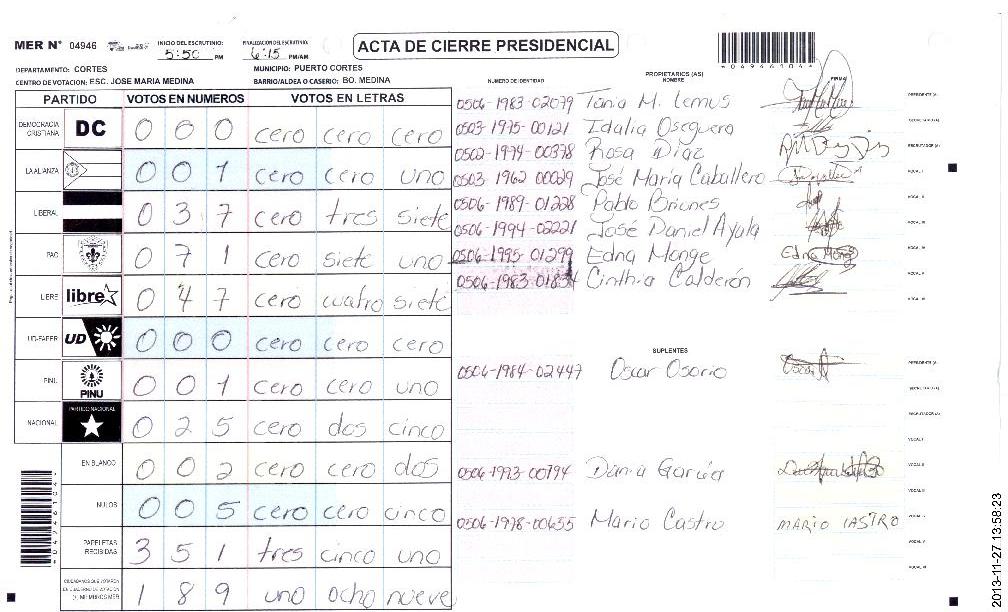 MER N° 04946
INICIO DEL ESCRUTINIO: 5:50 PM
FINALIZACION DEL ESCRUTINIO: 6:15 PM/AM
ACTA DE CIERRE PRESIDENCIAL
DEPARTAMENTO: CORTES
MUNICIPIO: PUERTO CORTES
CENTRO DE VOTACION: ESC. JOSE MARIA MEDINA
BARRIO/ALDEA O CASERIO: BO. MEDINA
PARTIDO VOTOS EN NUMEROS VOTOS EN LETRAS
DEMOCRACIA CRISTIANA DC 0 0 0 cero cero cero
LA ALIANZA 0 0 1 cero cero uno
LIBERAL 0 3 7 cero tres siete
PAC 0 7 1 cero siete uno
LIBRE libre 0 4 7 cero cuatro siete
UD-FAPER UD 0 0 0 cero cero cero
PINU PINU 0 0 1 cero cero uno
NACIONAL PARTIDO NACIONAL 0 2 5 cero dos cinco
EN BLANCO 0 0 2 cero cero dos
NULOS 0 0 5 cero cero cinco
PAPELETAS RECIBIDAS 3 5 1 tres cinco uno
CIUDADANOS QUE VOTARON 1 8 9 uno ocho nueve
NUMERO DE IDENTIDAD
PROPIETARIOS (AS)
NOMBRE
FIRMA
0506-1983-02079 Tania M. Lemus
0503-1975-00121 Idalia Oseguera
0502-1974-00378 Rosa Díaz
0503-1962 00029 José María Caballero
0506-1989-01228 Pablo Briones
0506-1994-02221 José Daniel Ayala
0506-1995-01299 Edna Monge Edna Monge
0506-1983-01834 Cinthia Calderón
SUPLENTES
0506-1984-02447 Oscar Osorio
0506-1993-00794 Dania García
0506-1978-00655 Mario Castro MARIO CASTRO
2013-11-27 13:58:23